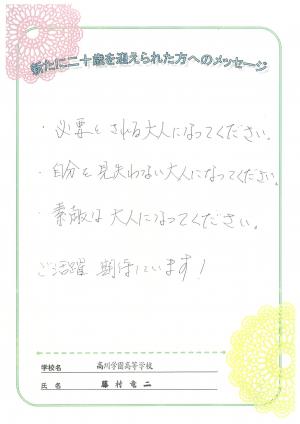 新たに二十歳を迎えられた方へのメッセージ
・必要とされる大人になってください。
・自分を見失わない大人になってください。
・素敵な大人になってください。
ご活躍 期待しています!
学校名 高川学園高等学校
氏名 藤村竜二